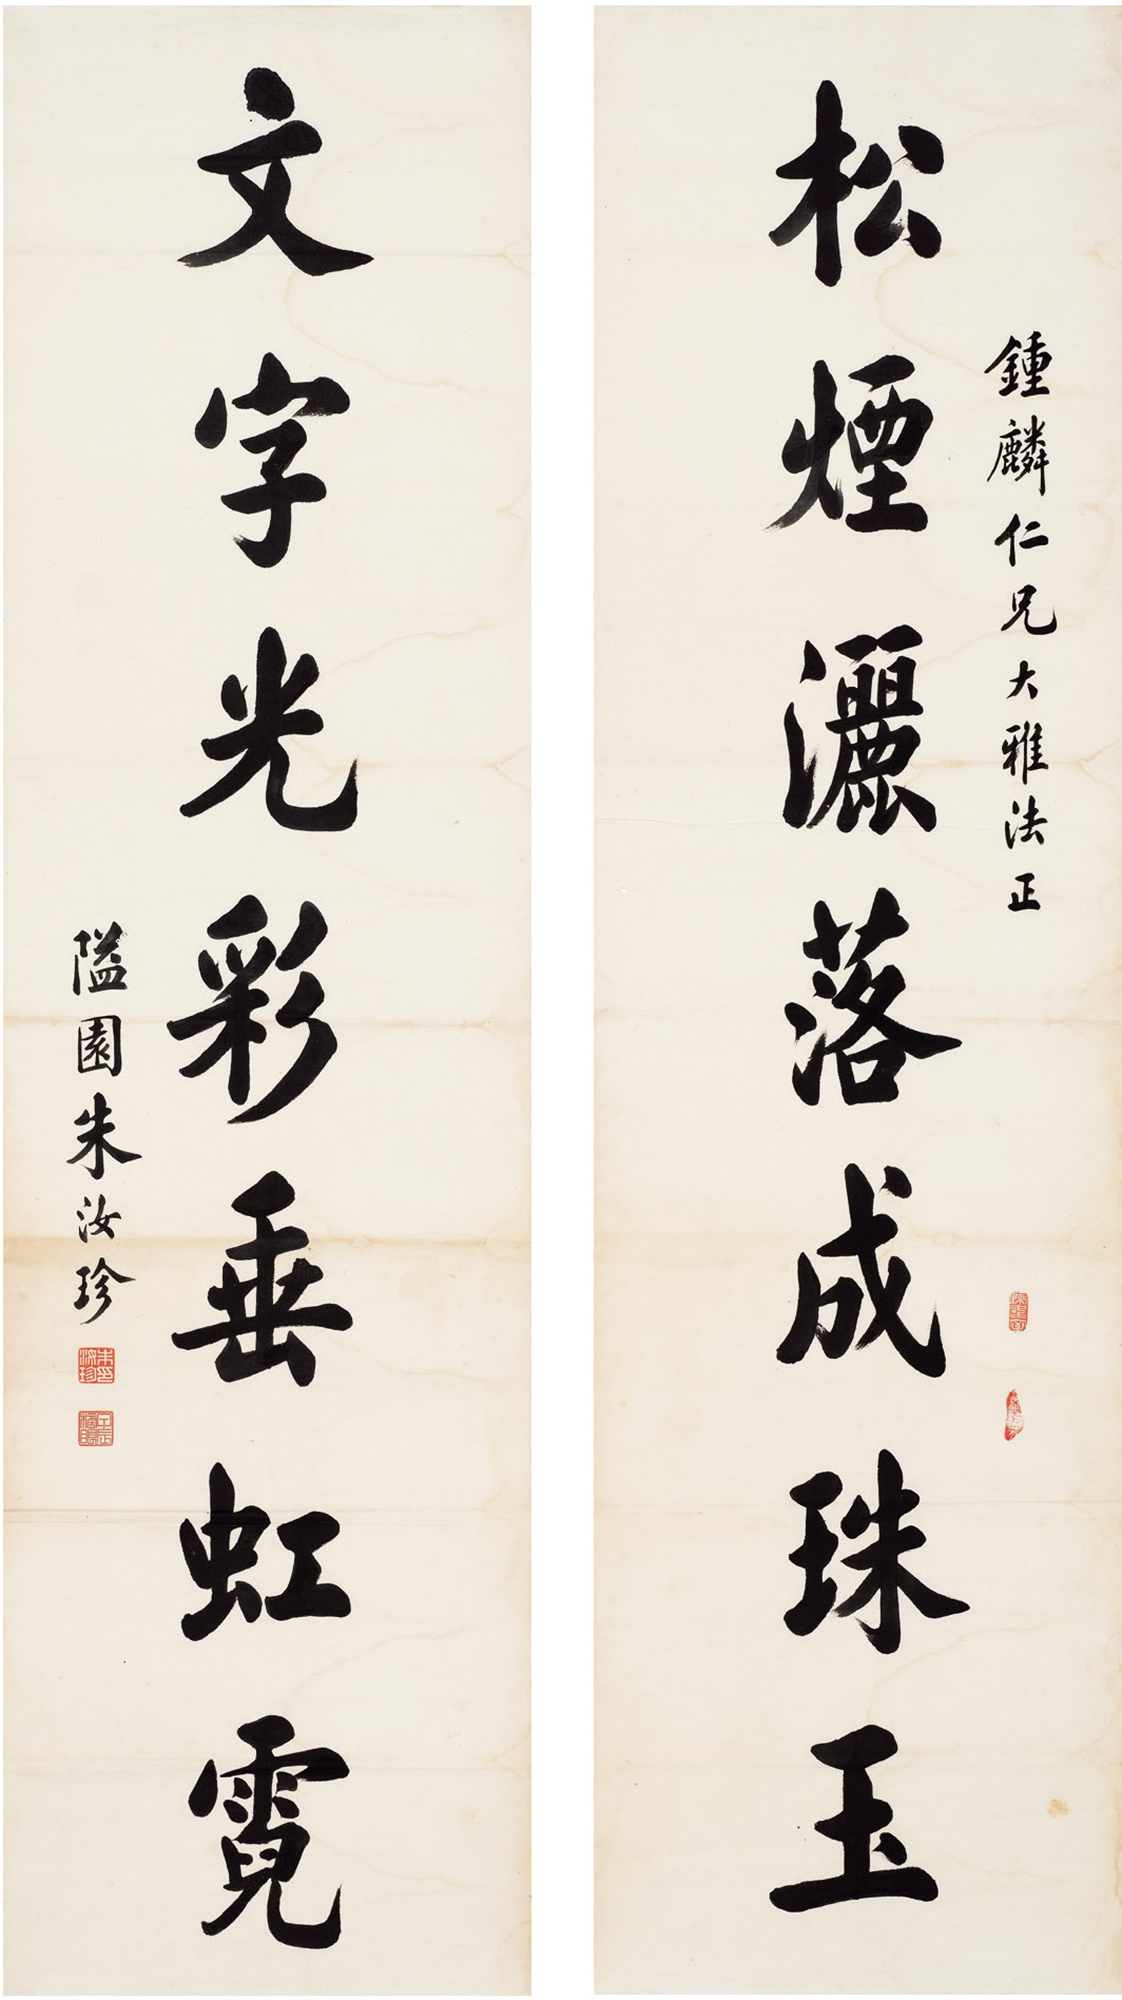 鍾麟仁兄大雅法正
松煙灑落成珠玉
文字光彩垂虹霓
隘園朱汝珍
朱印汝珍